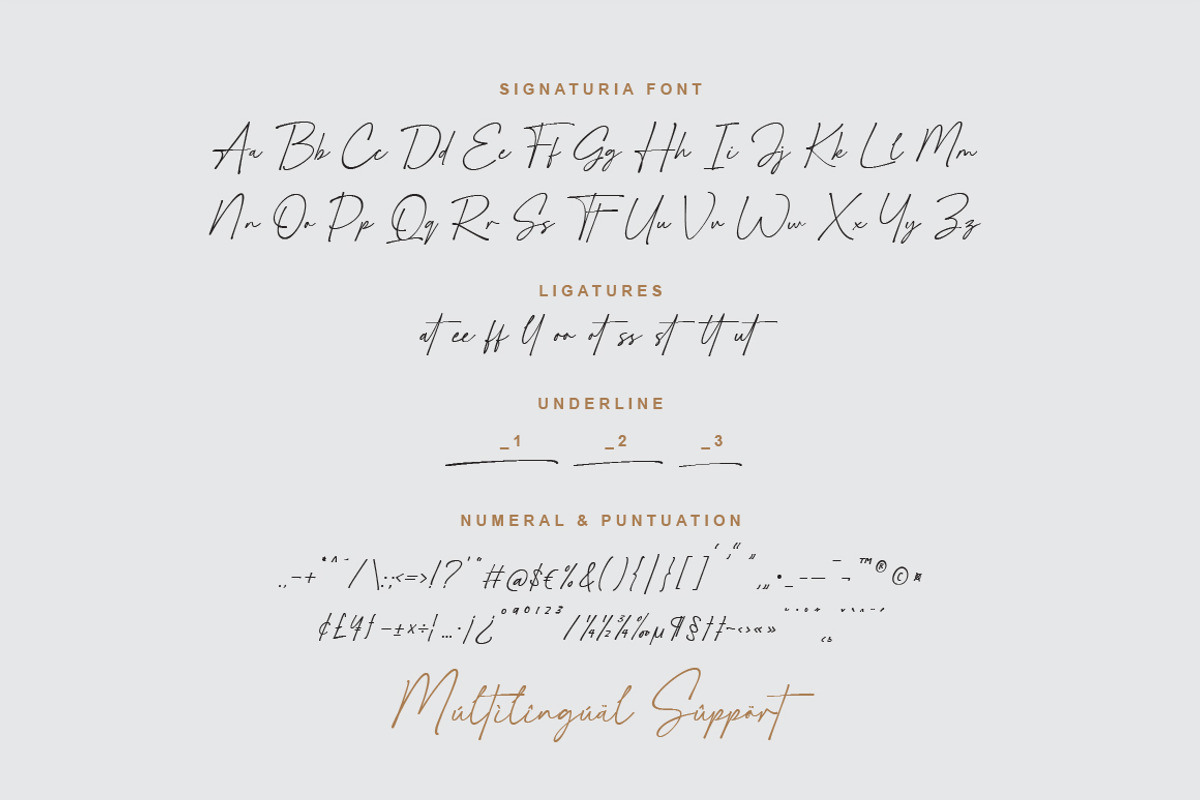 SIGNATURIA FONT
Aa Bb Cc Dd Ee Ff Gg Hh Ii Jj Kk Ll Mm
Nn Oo Pp Qq Rr Ss Tt Uu Vv Ww Xx Yy Zz
LIGATURES
at ee ff ll oo ot ss st tt ut
UNDERLINE
_1 _2 _3
NUMERAL & PUNTUATION
.,-+*^~/\:;<=>!?'"#@$€%&(){|}[]‘“”‚„•_–—¯¬™®©¤
¢£¥ƒ−±×÷¦…·¡¿ºª0123/¼½¾‰µ¶§†‡~‹›«»
Múltìlîngúäl Sûppört